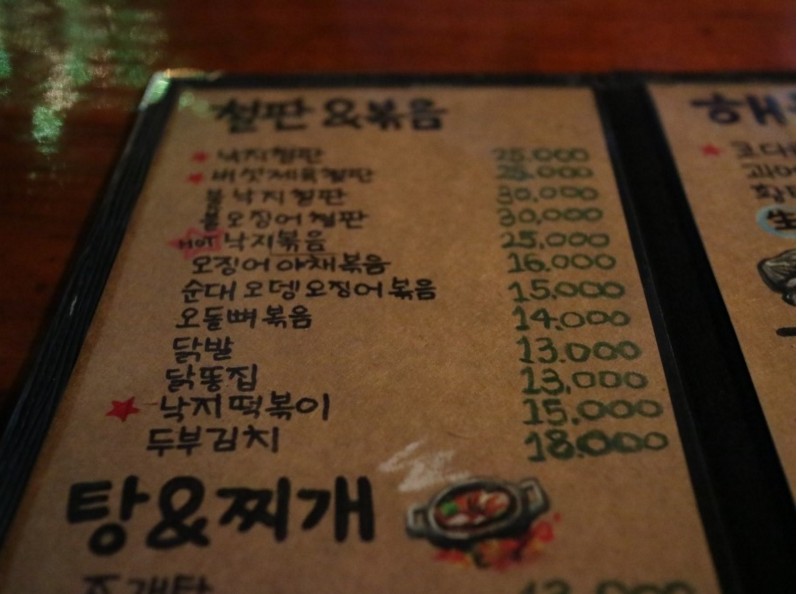 철판&볶음
낙지철판 25.000
버섯제육철판 25.000
낙지철판 30,000
오징어철판 30.000
HOT 낙지볶음 25,000
오징어야채볶음 16.000
순대오뎅오징어볶음 15.000
오돌뼈볶음 14.000
닭발 13.000
닭똥집 13,000
낙지떡볶이 15,000
두부김치 18.000
탕&찌개
조개탕 13.000
해
生